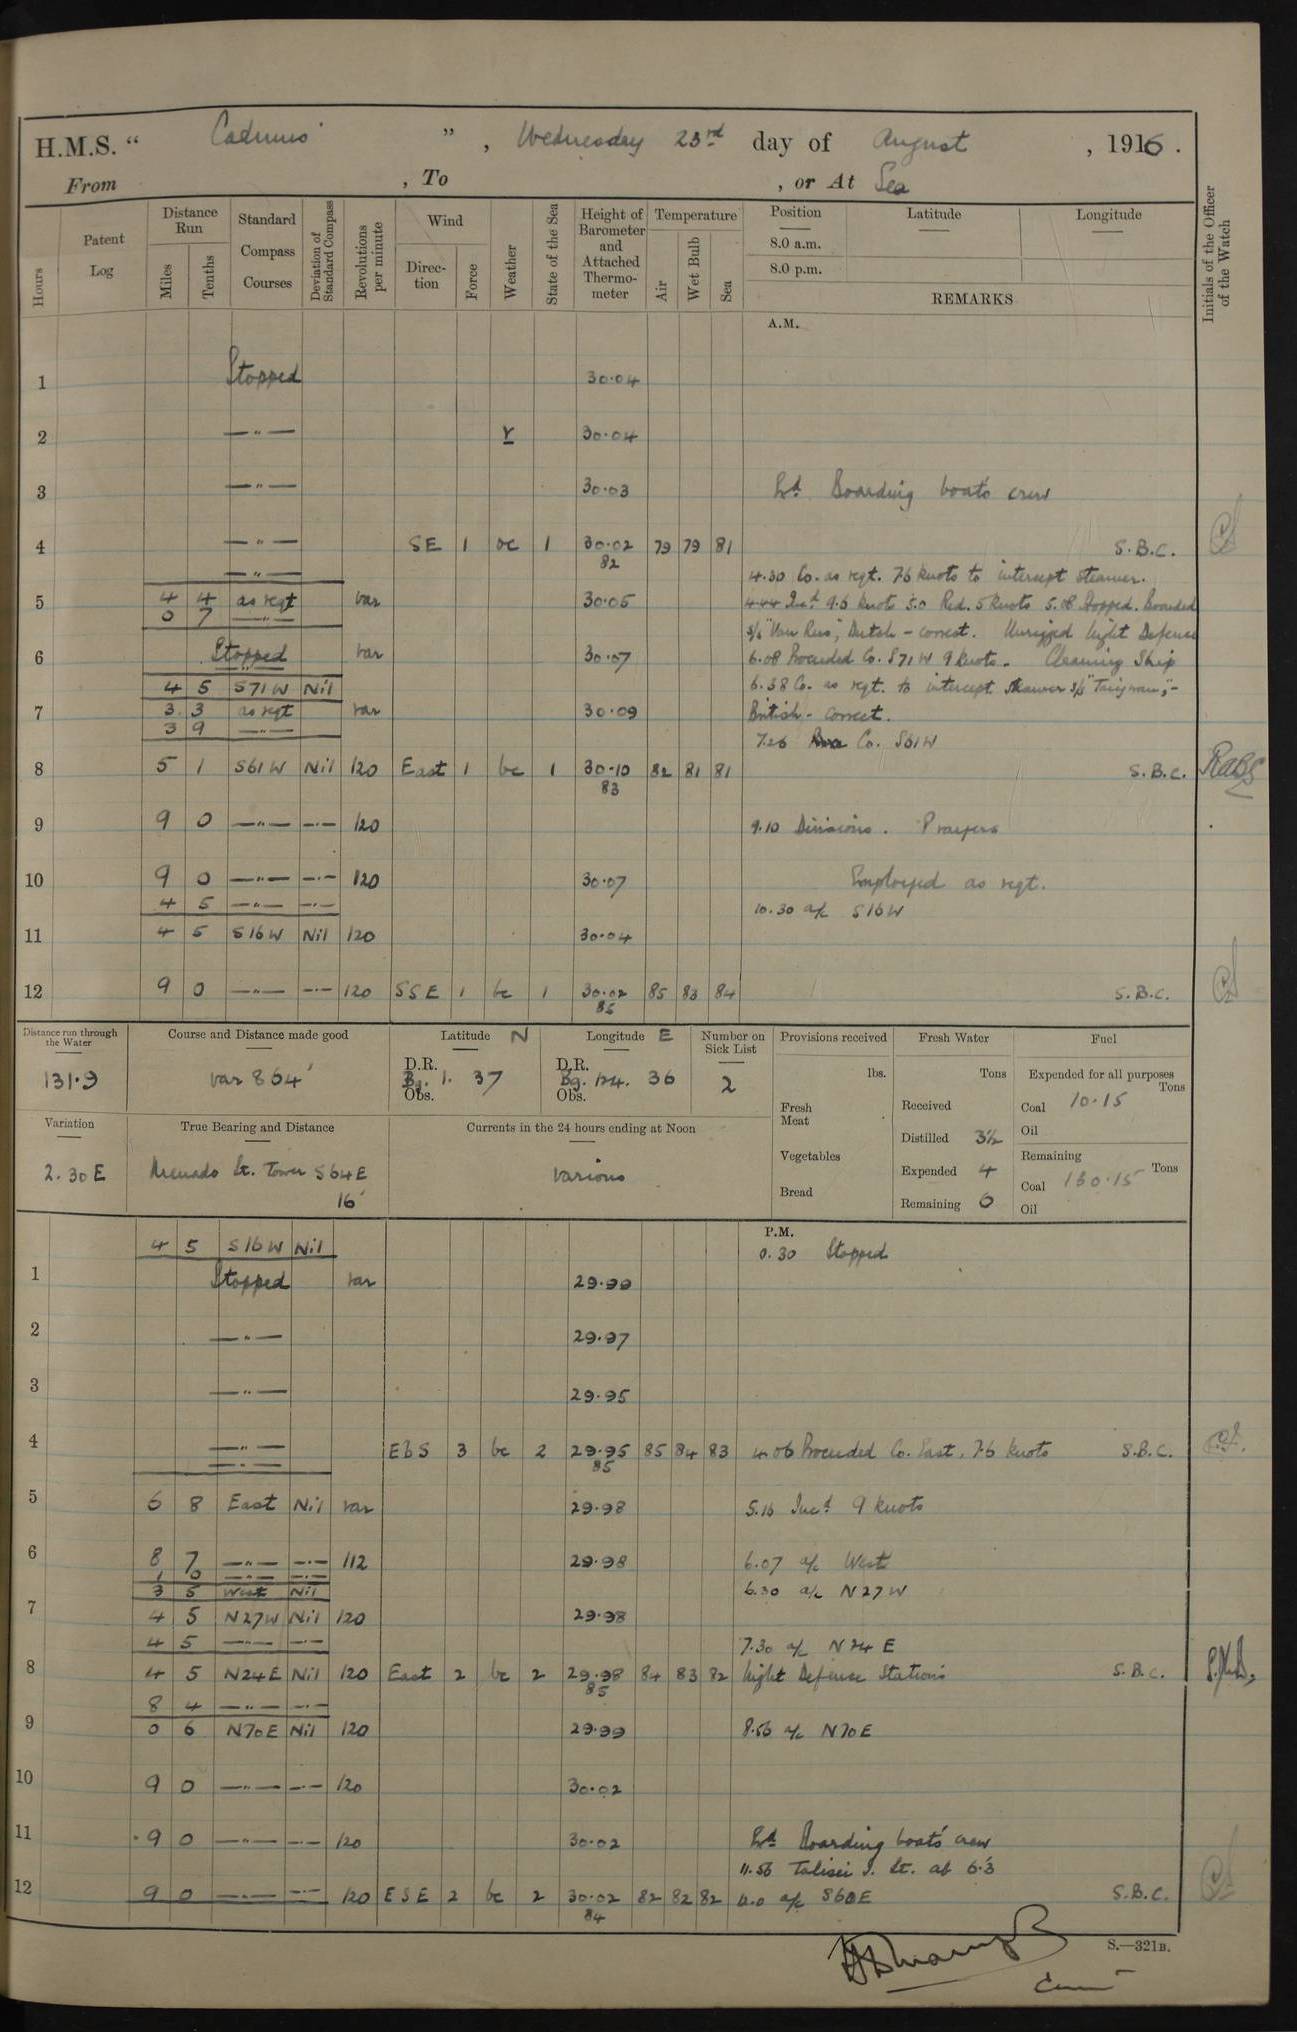 H.M.S. “ Cadmus ” , Wednesday 23rd day of August , 1916 .
From , To , or At Sea
Hours
Patent Log
Distance Run
Miles Tenths
Standard Compass Courses
Deviation of Standard Compass
Revolutions per minute
Wind
Direc- tion Force
Weather
State of the Sea
Height of Barometer and Attached Thermo- meter
Temperature
Air Wet Bulb Sea
Position Latitude Longitude
8.0 a.m.
8.0 p.m.
REMARKS
Initials of the Officer of the Watch
A.M.
1 Stopped 30.04
2 —"— r 30.04
3 —"— 30.03 Boarding boat's crew
4 —"— SE 1 oc 1 30.02 79 79 81 S.B.C.
82
—"— 4.30 Co. as reqt. 7.6 knots to intercept steamer.
5 4 4 as reqt var 30.05 4.44 Incd 9.6 knots 5.0 Red. 5 knots 5.08 Stopped. Boarded
0 7 —"— S/s "Van Rees", Dutch - correct. Unrigged Night Defence
6 Stopped var 30.07 6.08 Proceeded Co. S71W 9 knots. Cleaning Ship
4 5 S71W Nil 6.38 Co. as reqt. to intercept steamer S/s
7 3 3 as reqt var 30.09 British - correct.
3 9 —"— 7.26 Co. S61W
8 5 1 S61W Nil 120 East 1 bc 1 30.10 82 81 81 S.B.C.
83
9 9 0 —"— —"— 120 9.10 Divisions. Prayers
10 9 0 —"— —"— 120 30.07 Employed as reqt.
4 5 —"— —"— 10.30 a/c S16W
11 4 5 S16W Nil 120 30.04
12 9 0 —"— —"— 120 SSE 1 bc 1 30.02 85 83 84 S.B.C.
85
Distance run through the Water
Course and Distance made good
Latitude N
Longitude E
Number on Sick List
Provisions received
Fresh Water
Fuel
131.9
var 864'
D.R.
Bg. 1. 37
Obs.
D.R.
Bg. 124. 36
Obs.
2
lbs.
Tons
Expended for all purposes
Tons
Fresh Meat
Received
Coal 10.15
Oil
Variation
True Bearing and Distance
Currents in the 24 hours ending at Noon
Distilled 3½
Vegetables
Remaining
Expended 4
Tons
2.30E
Menado Lt. Tower S64E
16'
various
Bread
Remaining 6
Coal 130.15
Oil
P.M.
4 5 S16W Nil 0.30 Stopped
1 Stopped var 29.99
2 —"— 29.97
3 —"— 29.95
4 —"— EbS 3 bc 2 29.95 85 84 83 4.06 Proceeded Co. East, 7.6 knots S.B.C.
—"— 85
5 6 8 East Nil var 29.98 5.16 Incd 9 knots
6 8 7 —"— —"— 112 29.98 6.07 a/c West
1 0 —"— —"—
3 5 West Nil 6.30 a/c N27W
7 4 5 N27W Nil 120 29.98
4 5 —"— —"— 7.30 a/c N24E
8 4 5 N24E Nil 120 East 2 bc 2 29.98 84 83 82 Night Defence Stations S.B.C.
85
8 4 —"— —"—
9 0 6 N70E Nil 120 29.99 8.56 a/c N70E
10 9 0 —"— —"— 120 30.02
11 9 0 —"— —"— 120 30.02 Boarding boat's crew
11.56 Talisei I. Lt. ab 6.3
12 9 0 —"— —"— 120 ESE 2 bc 2 30.02 82 82 82 12.0 a/c S60E S.B.C.
84
S.—321B.